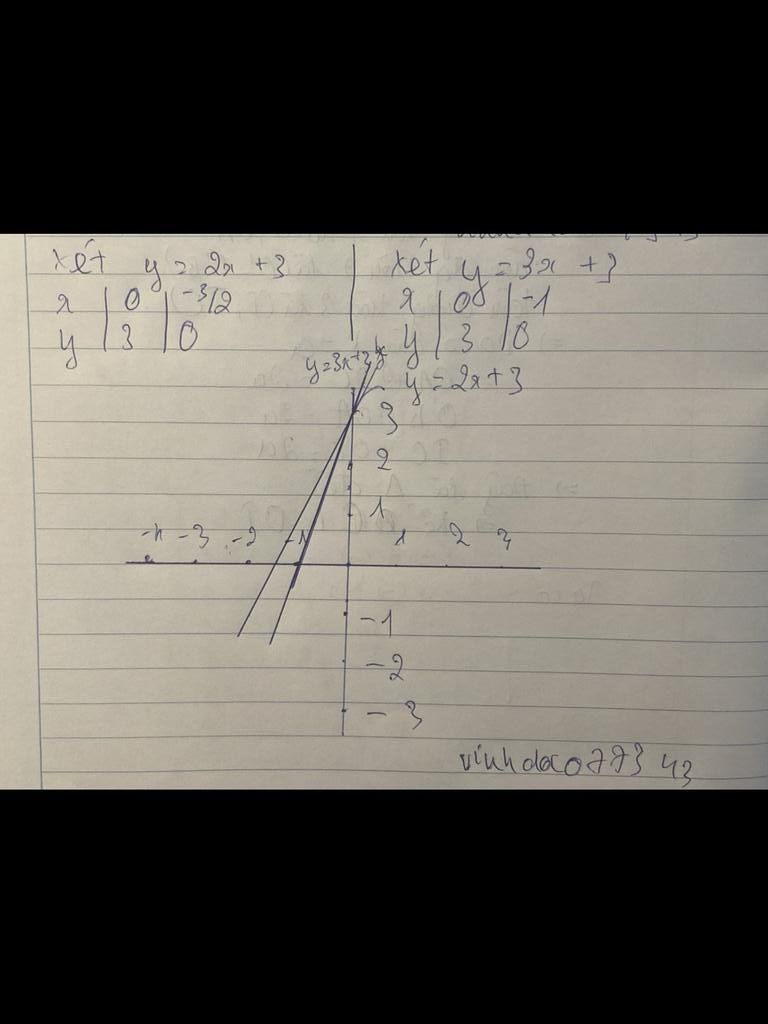 xét y = 2x + 3 | xét y = 3x + 3
x | 0 | -3/2 x | 0 | -1
y | 3 | 0 y | 3 | 0
y=3x+3
y = 2x+3
3
2
1
-4 -3 -2 -1 1 2 3
-1
-2
-3
vinhdoc077343